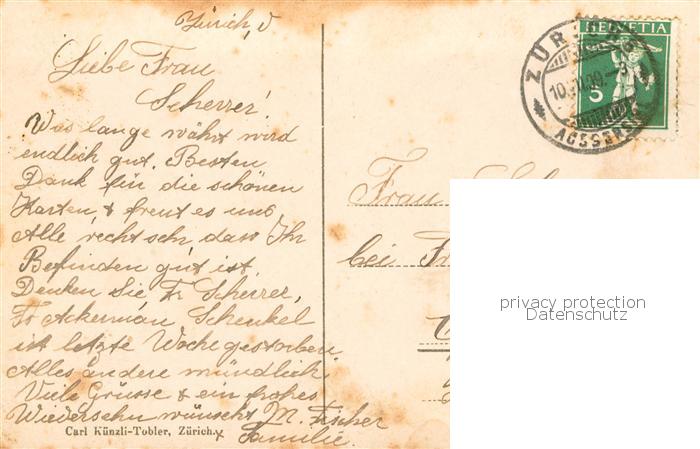 Zürich, d
Liebe Frau
Scherrer!
Was lange währt wird
endlich gut. Besten
Dank für die schönen
Karten, & freut es uns
Alle recht sehr, dass Ihr
Befinden gut ist.
Denken Sie Fr. Scherrer,
Fr Ackerman Schenkel
ist letzte Woche gestorben.
Alles andere mündlich.
Viele Grüsse & ein frohes
Wiedersehn wünscht M. Fischer
Familie.
Carl Künzli-Tobler, Zürich.
HELVETIA
5
ZÜRICH
10.
AUSSERSIHL
Frau
bei Fr
privacy protection
Datenschutz